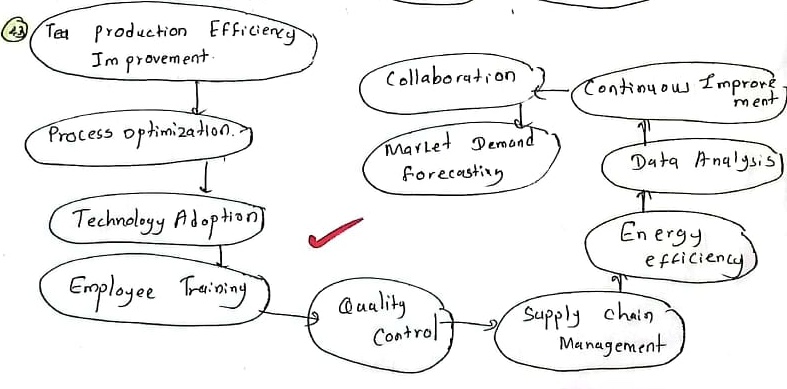 43
Tea production Efficiency
Improvement.
Process optimization.
Technology Adoption
Employee Training
Quality
Control
Supply Chain
Management
Energy
efficiency
Data Analysis
Continuous Improve
ment
Collaboration
Market Demand
Forecasting